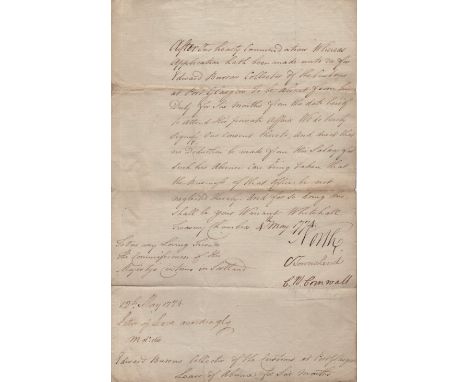 After Our hearty Commendations Whereas
Application hath been made unto us for
Edward Burrow Collector of the Customs
at Port Glasgow to be absent from his
Duty for Six months from the date hereof
to attend his private Affairs We do hereby
signify Our Consent thereto, and direct that
no Deduction be made from his Salary for
such his Absence Care being taken that
the Business of that Office be not
neglected thereby. And for so doing this
shall be your Warrant Whitehall
Treasury Chambers 4th May 1774
North
C Townshend
C. W Cornwall
To our very Loving Friends
the Commissioners of His
Majesty's Customs in Scotland
12th May 1774
Letter of Leave accordingly
Edward Burrow Collector of the Customs at Port Glasgow
Leave of Absence for Six months